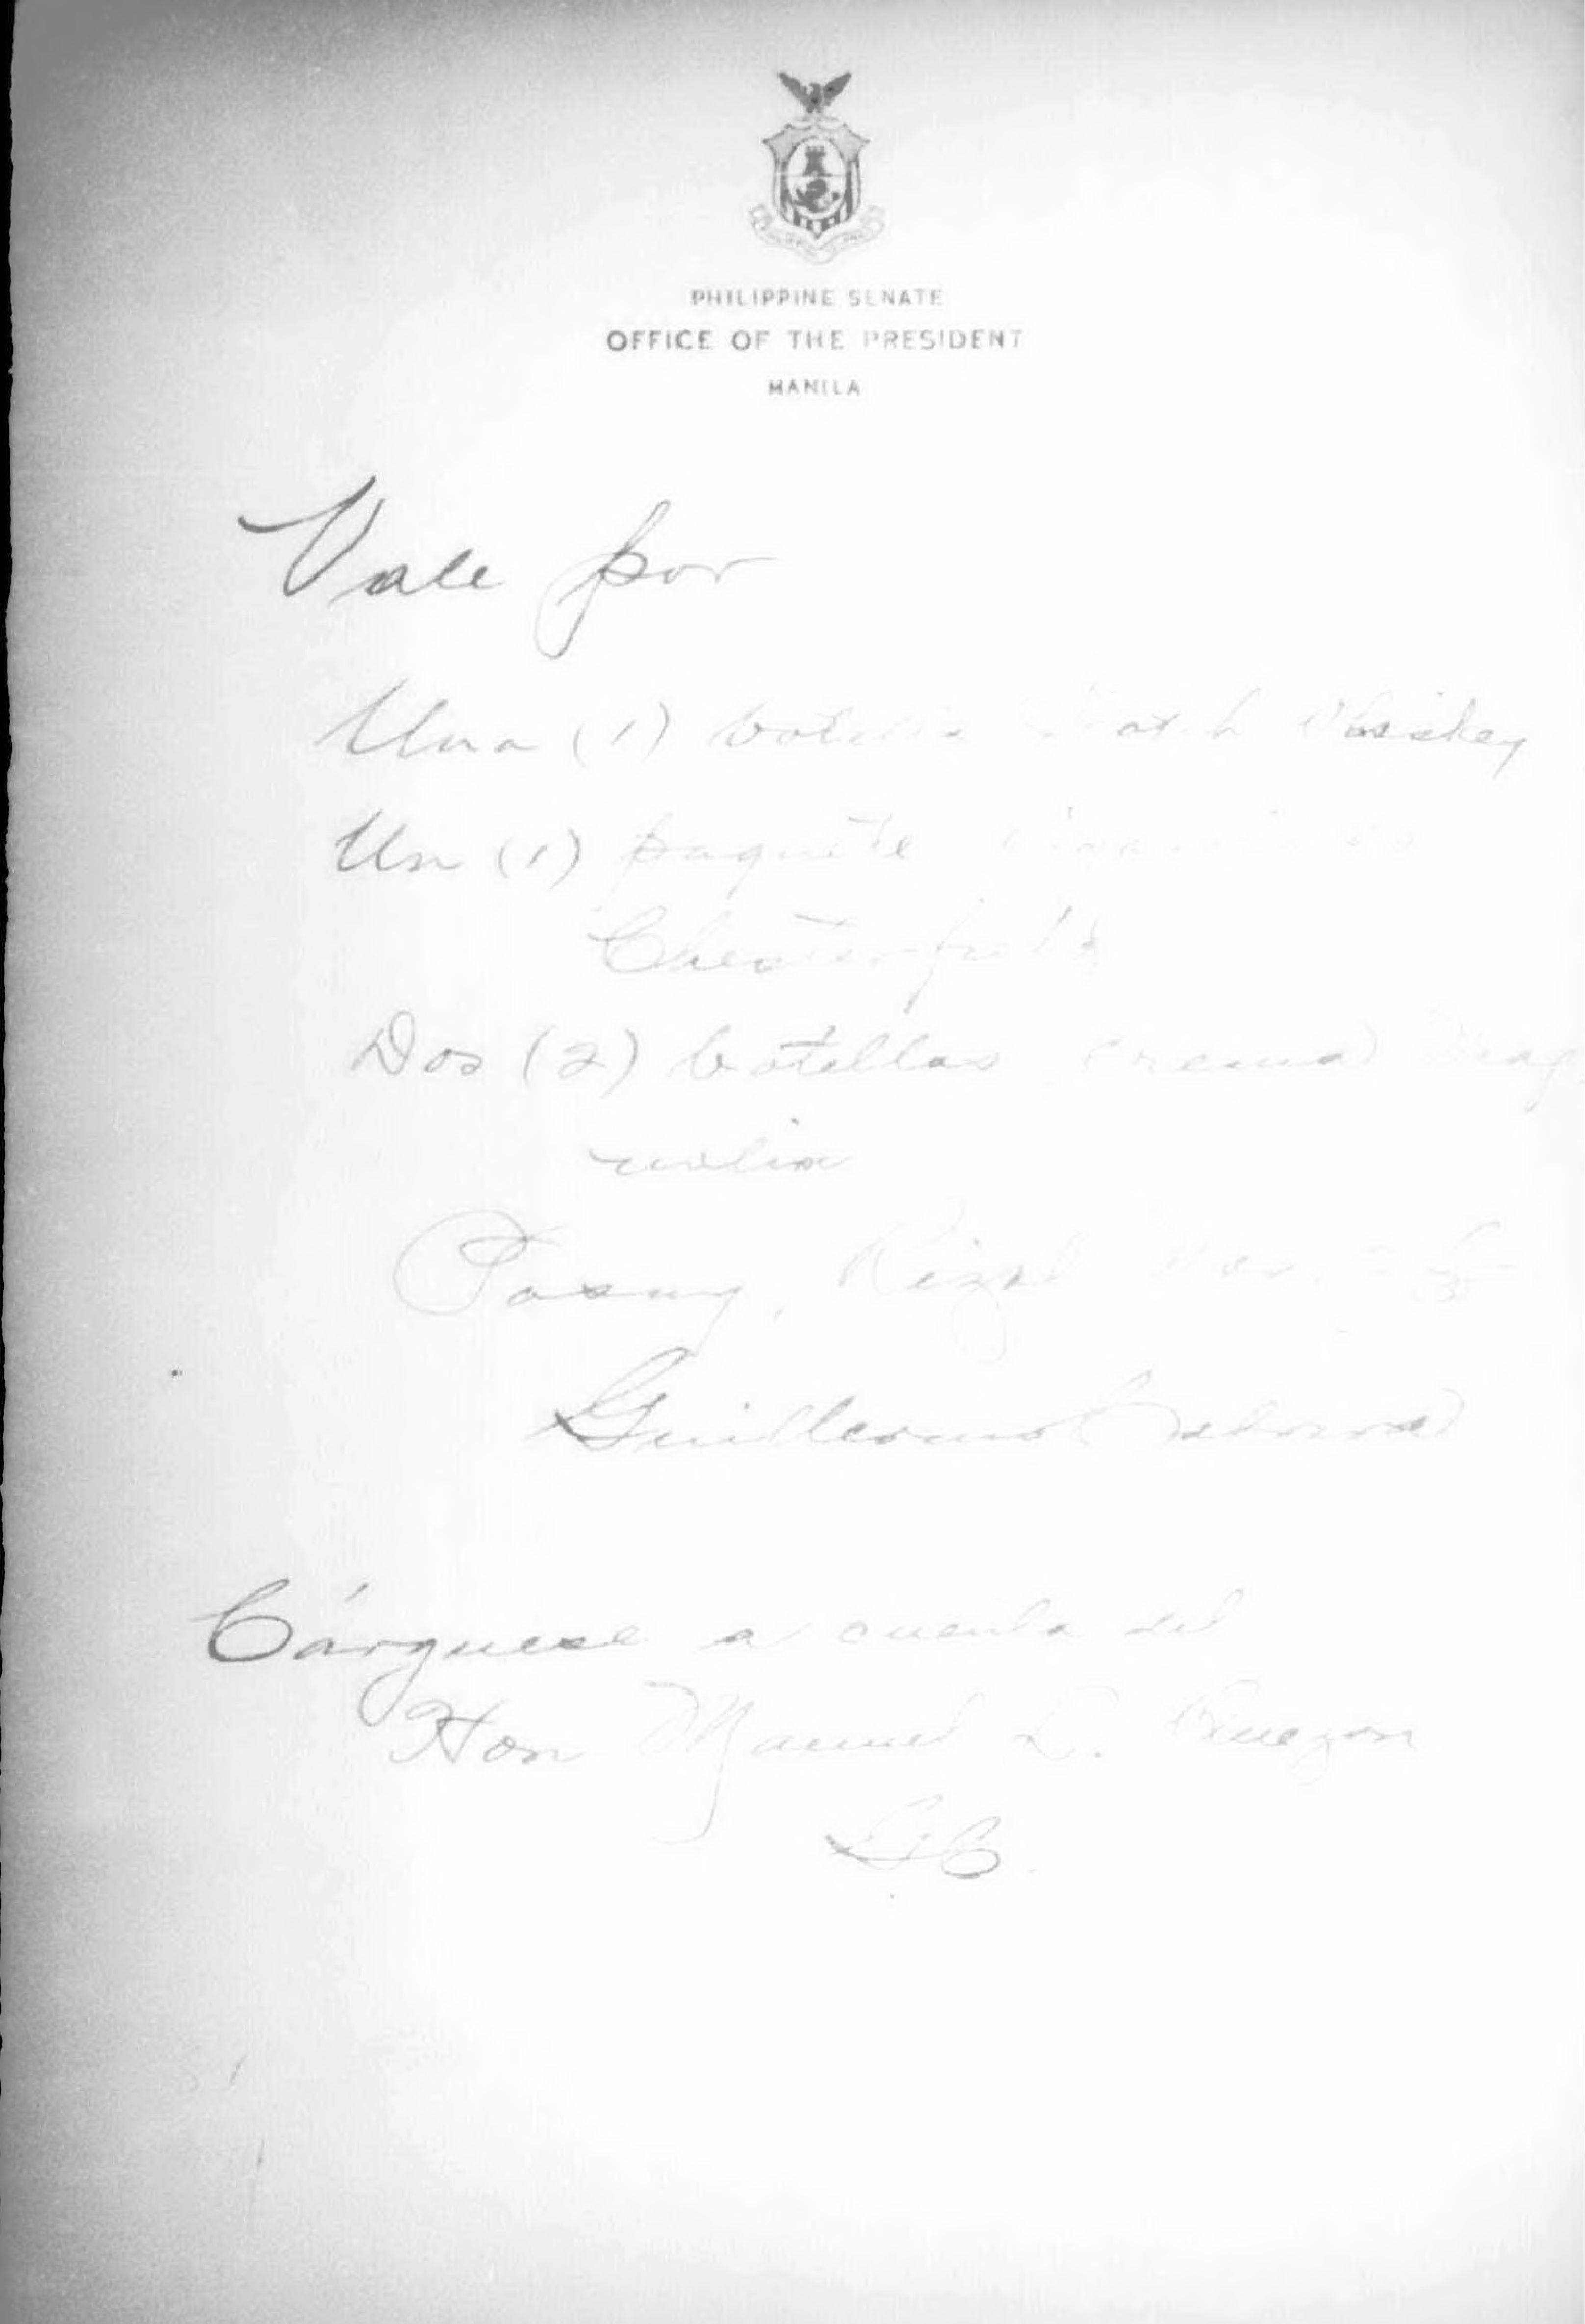 PHILIPPINE SENATE
OFFICE OF THE PRESIDENT
MANILA
Vale por
Una (1) botella Scotch Whiskey
Un (1) paquete
Chesterfield
Dos (2) botellas crema
Pasay, Rizal Nov.
Guillermo Cabrera
Cárguese a cuenta del
Hon Manuel L. Quezon
GC.